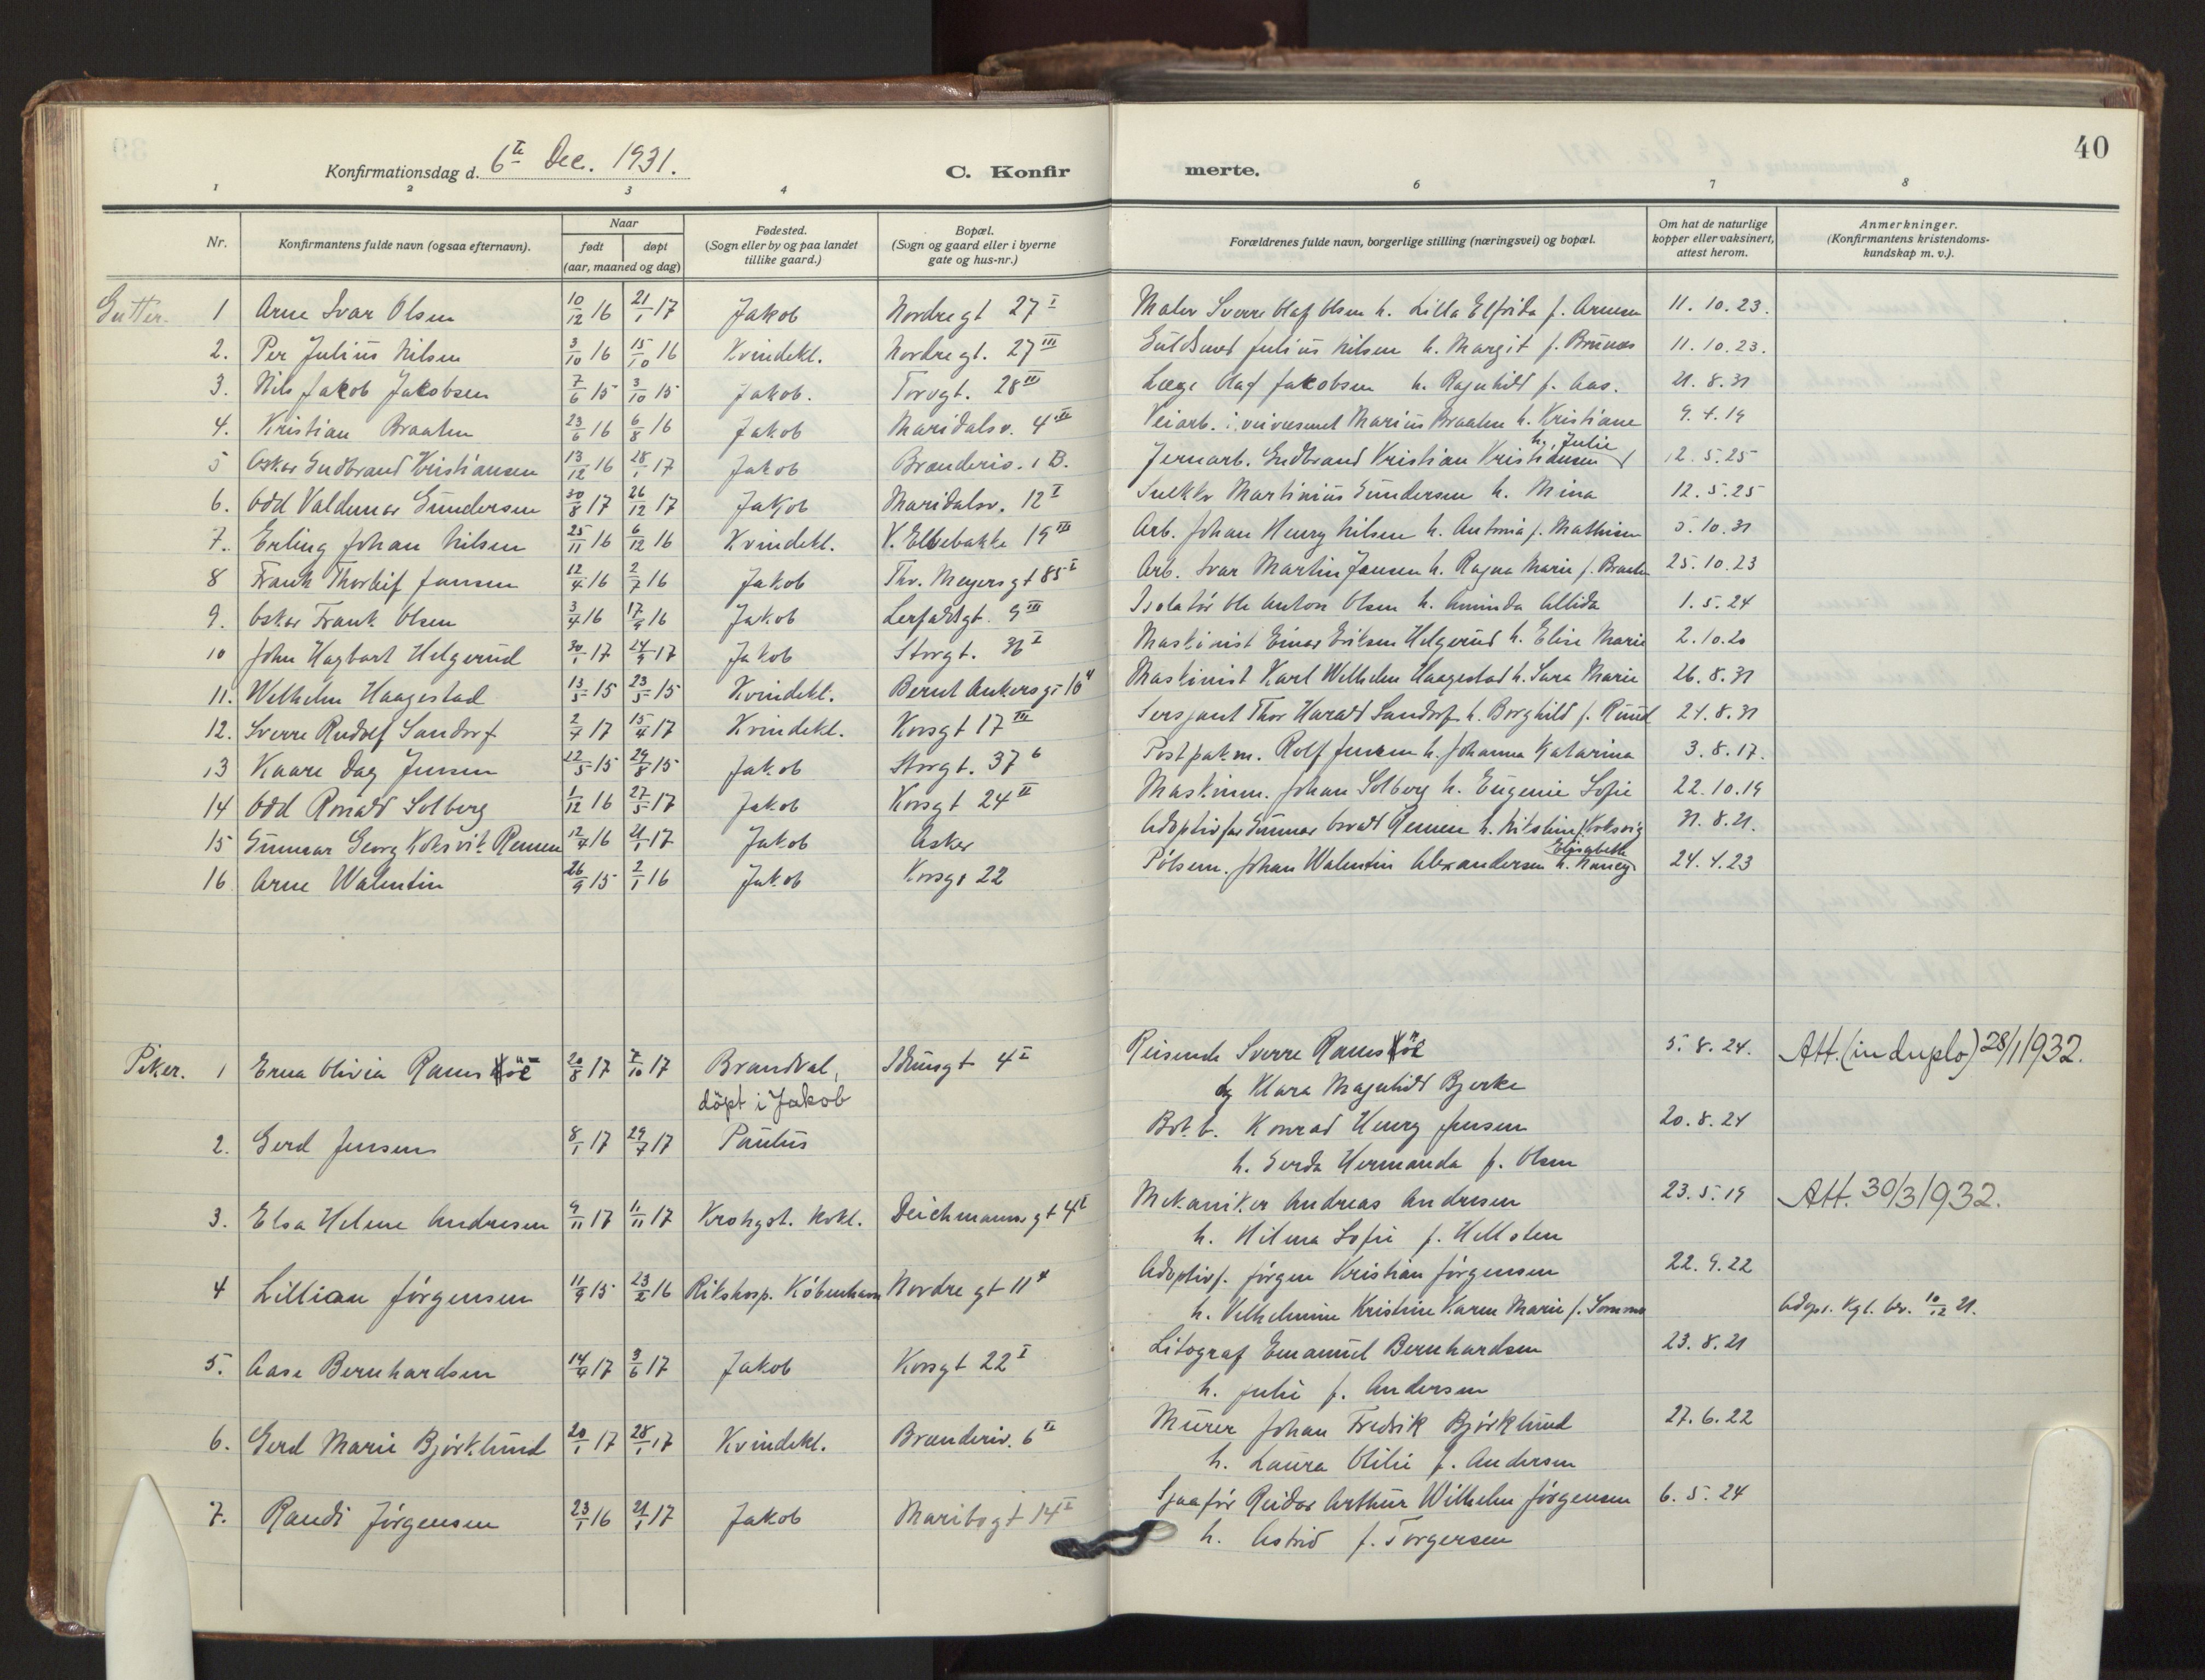 40
Konfirmationsdag d. 6te Dec. 1931.
C. Konfir
merte.
1 2 3 4 6 7 8
Nr.
Konfirmantens fulde navn (ogsaa efternavn).
Naar
født døpt
(aar, maaned og dag)
Fødested.
(Sogn eller by og paa landet
tillike gaard.)
Bopæl.
(Sogn og gaard eller i byerne
gate og hus-nr.)
Forældrenes fulde navn, borgerlige stilling (næringsvei) og bopæl.
Om hat de naturlige
kopper eller vaksinert,
attest herom.
Anmerkninger.
(Konfirmantens kristendoms-
kundskap m. v.).
Gutter. 1 Arne Ivar Olsen 10/12 16 21/1 17 Jakob Nordregt 27 I Maler Sverre Olaf Olsen h. Lilla Elfrida f. Arnesen 11. 10. 23.
2. Per Julius Nilsen 3/10 16 15/10 16 Kvindekl. Nordregt. 27 III Guldsmed Julius Nilsen h. Margit f. Brunæs 11. 10. 23.
3. Nils Jakob Jakobsen 7/6 15 3/10 15 Jakob. Torvgt. 28 Læge Olaf Jakobsen h. Ragnhild f. Aas. 21. 8. 31
4. Kristian Braaten 23/6 16 6/8 16 Jakob Maridalsv. 4 Veiarb. i veivæsenet Marius Braaten h. Kristiane 9. 4. 19
5 Oskar Gudbrand Kristiansen 13/12 16 28/1 17 Jakob Brenneriv. 1 B. Jernarb. Gudbrand Kristian Kristiansen h. Julie 12. 5. 25
6. Odd Valdemar Gundersen 30/8 17 26/12 17 Jakob Maridalsv. 12 I Snekker Martinius Gundersen h. Mina 12. 5. 25
7. Erling Johan Nilsen 25/11 16 6/12 16 Kvindekl. V. Elvebakke 19 III Arb. Johan Henry Nilsen h. Antonia f. Mathisen 5. 10. 31
8 Frank Thorleif Jansen 12/4 16 2/7 16 Jakob Thv. Meyersgt 85 I Arb. Ivar Martin Jansen h. Ragna Marie f. Braaten 25. 10. 23
9. Oskar Frank Olsen 3/4 16 17/9 16 Jakob Lerfaldsgt. 9 III Isolatör Ole Anton Olsen h. Aminda Allida 1. 5. 24
10 John Hagbart Helgerud 30/1 17 24/9 17 Jakob Storgt. 36 I Maskinist Einar Eriksen Helgerud h. Elise Marie 2. 10. 20
11. Wilhelm Haagestad 13/5 15 23/5 15 Kvindekl. Bernt Ankersgt 10 4 Maskinist Karl Wilhelm Haagestad h. Sara Marie 26. 8. 31
12. Sverre Rudolf Sandorf 2/4 17 15/4 17 Kvindekl. Korsgt 17 III Sersjant Thor Harald Sandorf h. Borghild f. Ruud 24. 8. 31
13 Kaare Dag Jensen 22/5 15 29/8 15 Jakob Storgt. 37 6 Postpakm. Rolf Jensen h. Johanna Katarina 3. 8. 17.
14 Odd Ronald Solberg 1/12 16 27/5 17 Jakob Korsgt 24 II Maskinm. Johan Solberg h. Eugenie Sofie 22. 10. 19
15 Gunnar Georg Koksvik Remen 12/4 16 21/1 17 Jakob Asker Adoptivfar Gunnar Osvald Remen h. f. Koksvig 31. 8. 21.
16 Arne Walentin 26/9 15 2/1 16 Jakob Korsgt 22 Pölsem. Johan Walentin Alexandersen h. Nancy Elisabeth 24. 4. 23
Piker. 1 Erna Olivia Rams 20/8 17 7/10 17 Brandval, Idunsgt 4 I Reisende Sverre Rams 5. 8. 24. Att. (in duplo) 28/1 1932.
döpt i Jakob og Klara Magnhild Bjerke
2. Gerd Jensen 8/1 17 29/7 17 Paulus Konrad Henry Jensen 20. 8. 24
h. Gerda Hermanda f. Olsen
3. Elsa Helene Andresen 9/11 17 11/11 17 Krohgst. Deichmannsgt 4 I Mekaniker Andreas Andresen 23. 5. 19 Att. 30/3 1932.
h. Hilma Sofie f. Hellsten
4 Lillian Jörgensen 11/9 15 23/2 16 Rikshosp. Köbenhavn Nordregt 11 4 Adoptivf. Jörgen Kristian Jörgensen 22. 9. 22
h. Vilhelmine Kristine Karen Marie f. Adopt. Kgl. bev. 10/12 21.
5. Aase Bernhardsen 14/4 17 3/6 17 Jakob Korsgt 22 I Litograf Emanuel Bernhardsen 23. 8. 21
h. Julie f. Andersen
6. Gerd Marie Björklund 20/1 17 28/1 17 Kvindekl. Brenneriv. 6 II Murer Johan Fredrik Björklund 27. 6. 22
h. Laura Otilie f. Andersen
7. Randi Jörgensen 23/1 16 21/1 17 Jakob Maribogt 14 I Sjaaför Reidar Arthur Wilhelm Jörgensen 6. 5. 24
h. Astrid f. Torgersen